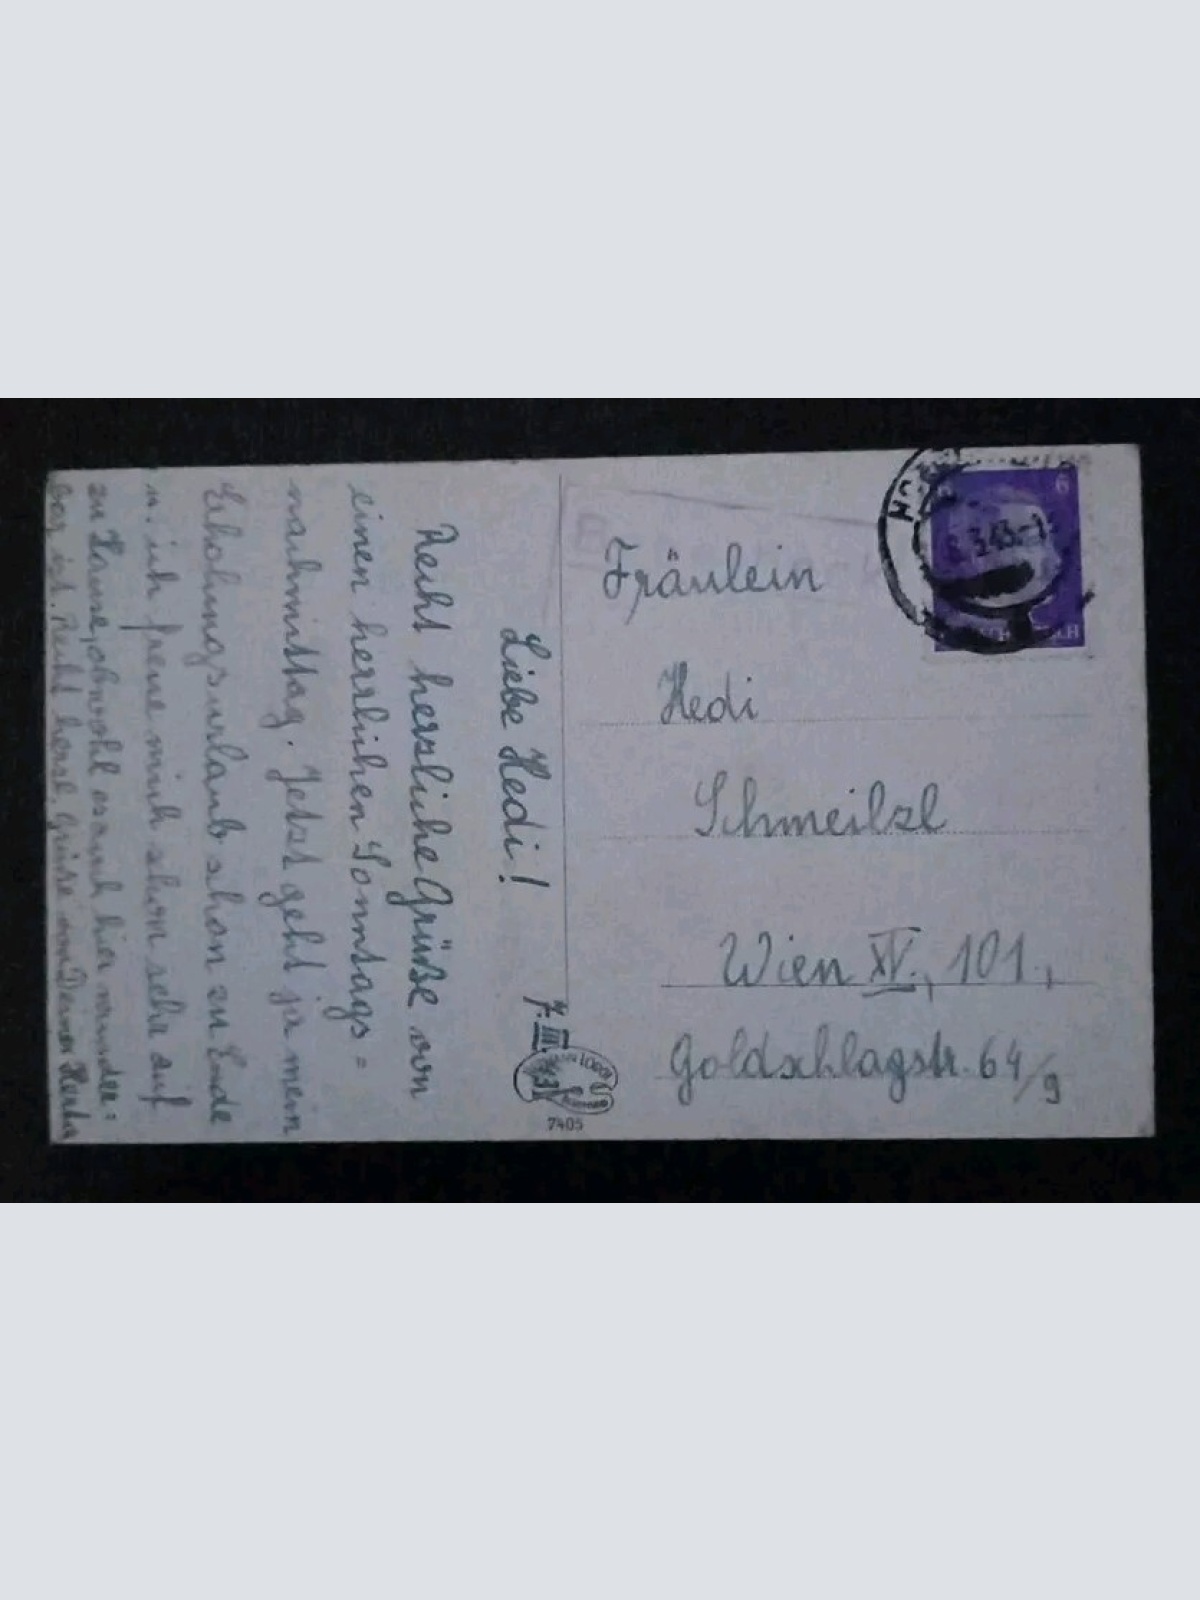 7.III.43
Liebe Hedi!
Recht herzliche Grüße von
einen herrlichen Sonntags=
nachmittag. Jetzt geht ja mein
Erholungsurlaub schon zu Ende
u. ich freue mich schon sehr auf
zu Hause, obwohl es auch hier wunder=
bar ist. Recht herzl. Grüße von Deiner Herta
Fräulein
Hedi
Schmeilzl
Wien XV., 101.,
Goldschlagstr. 64/9
6
3.43
7405